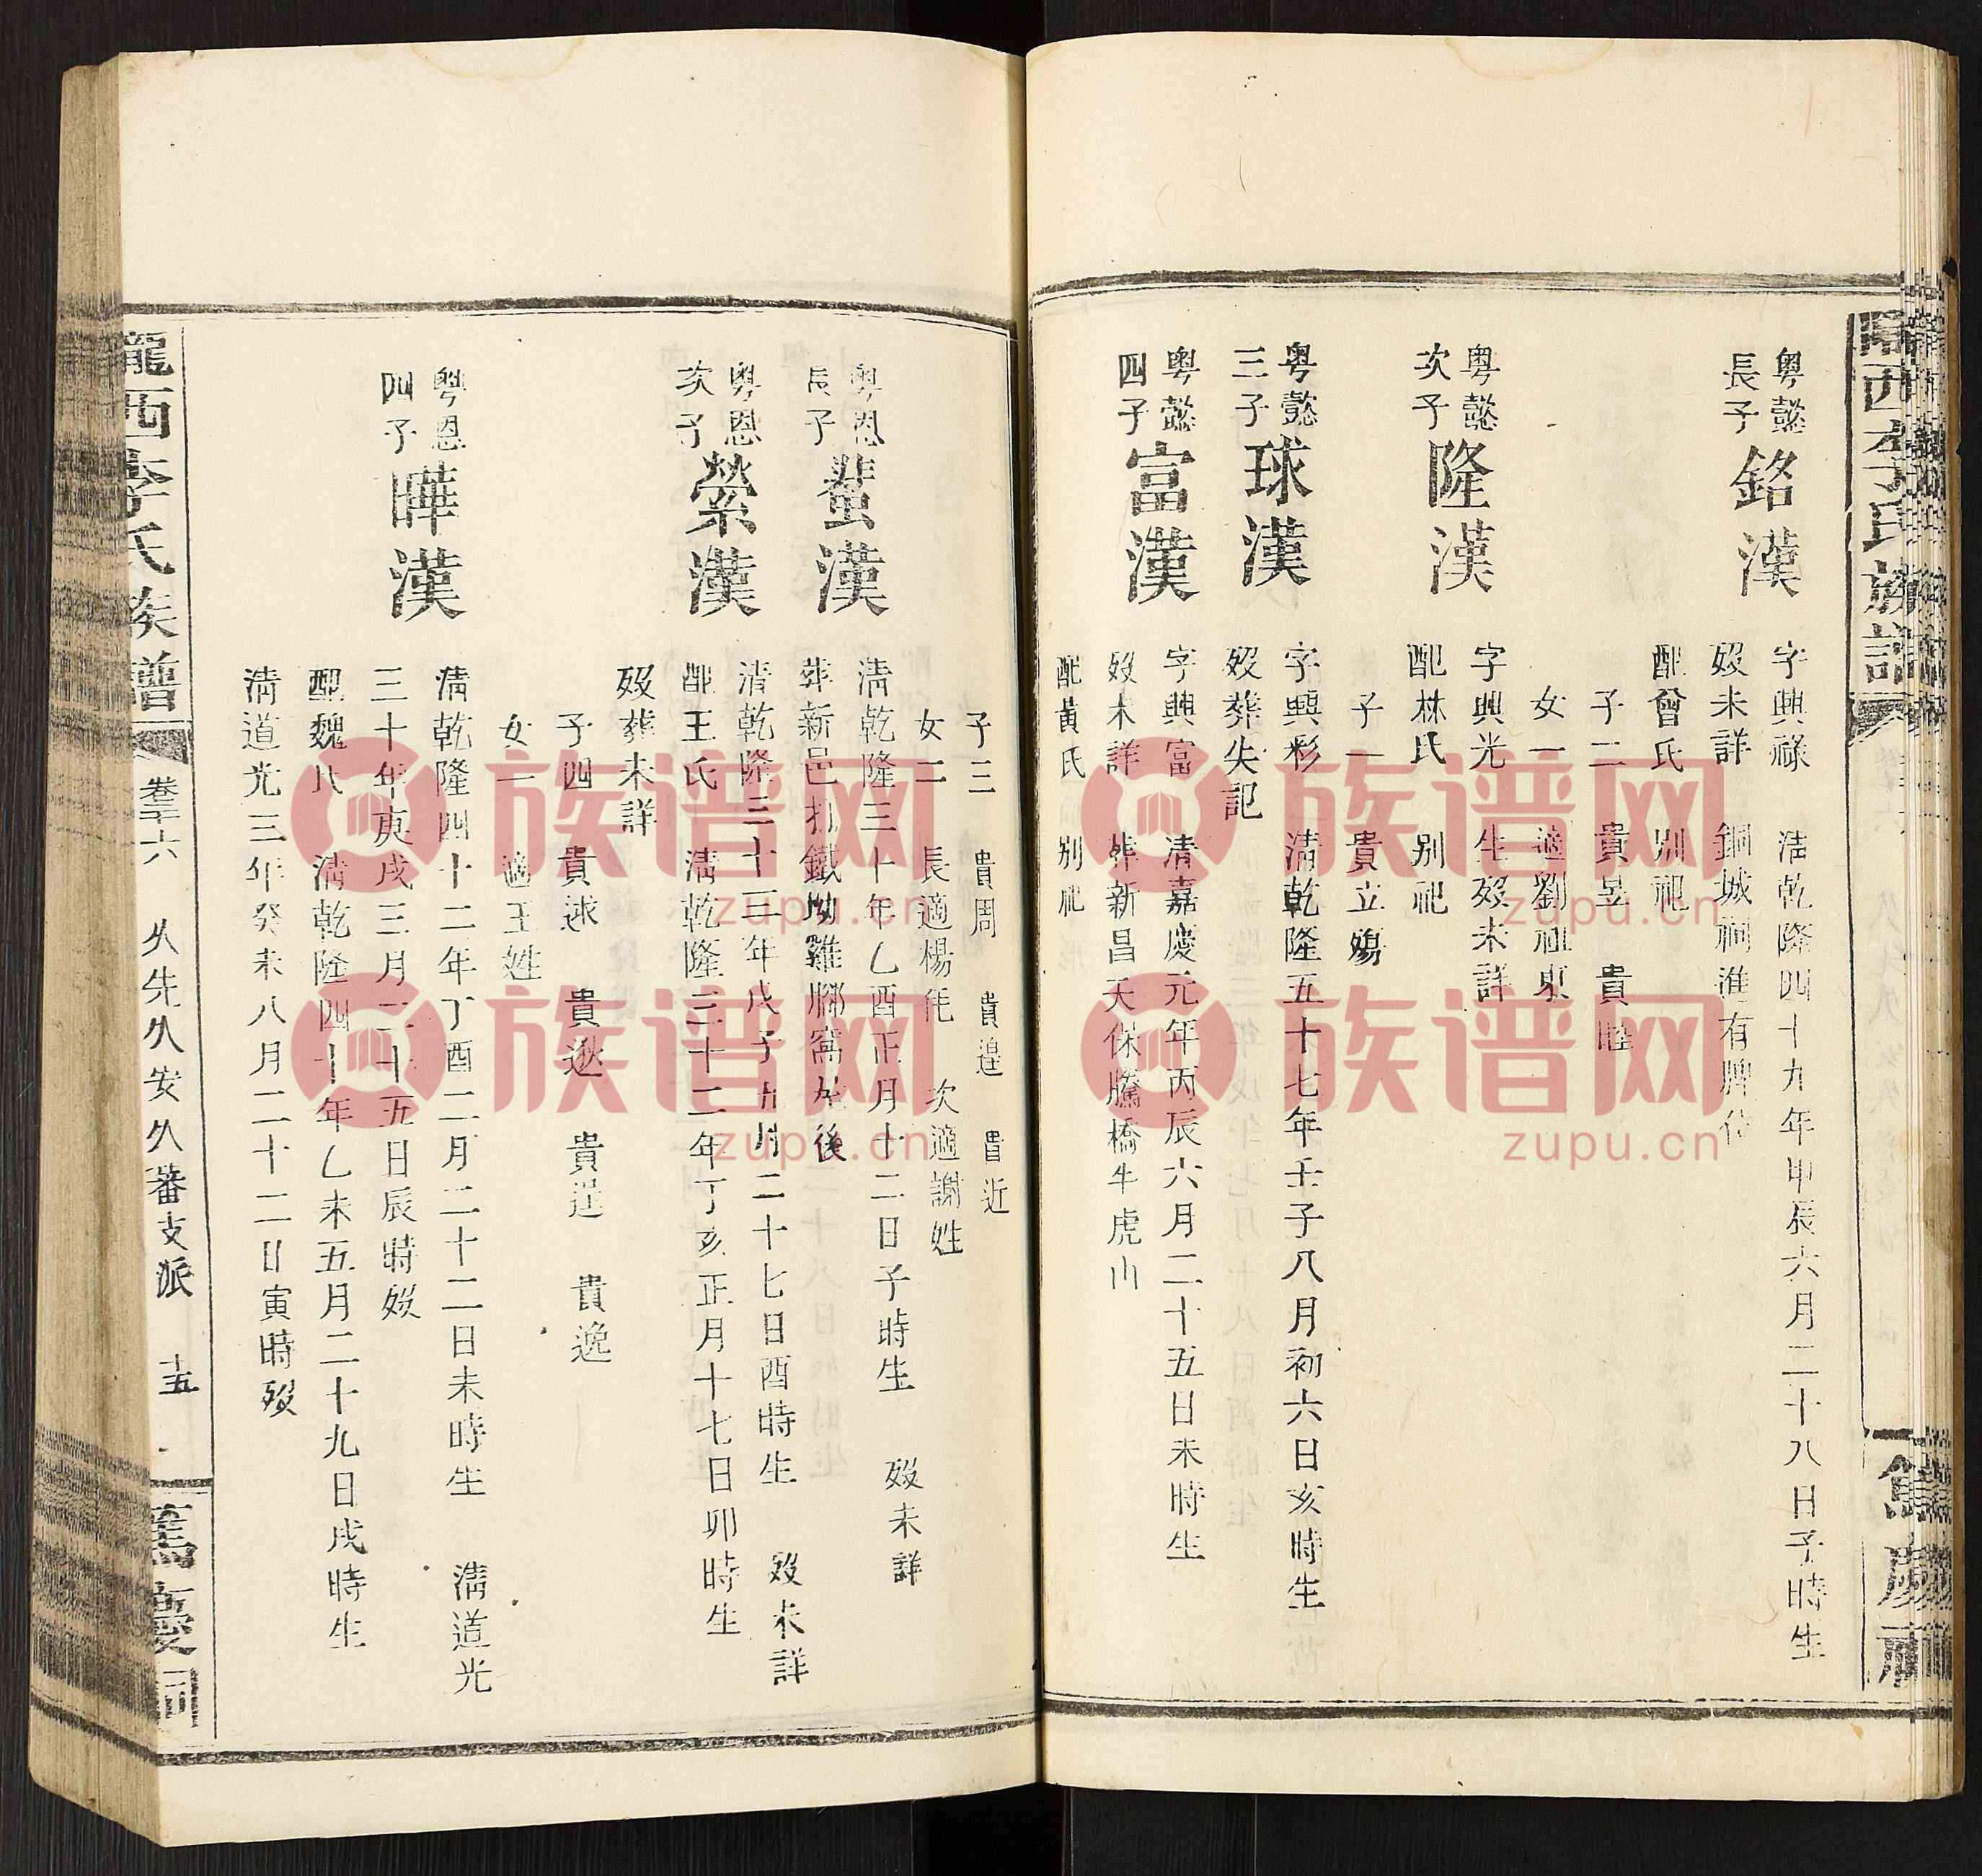 隴西李氏族譜
餘慶
粤懿
長子
銘漢
字興祿 清乾隆四十九年申辰六月二十八日子時生
歿未詳 銅城祠進有牌位
配曾氏 别祀
子二 貴昱 貴
女一 適劉祖東
粤懿
次子
隆漢
字興光 生歿未詳
配林氏 别祀
子一 貴立殤
粤懿
三子
球漢
字興彩 清乾隆五十七年壬子八月初六日亥時生
歿葬失記
粤懿
四子
富漢
字興富 清嘉慶元年丙辰六月二十五日未時生
歿未詳 葬新昌天保騰橋牛虎山
配黃氏 别祀
子三 貴周 貴遑 貴近
女二 長適楊 次適謝姓
粤恩
長子
蜚漢
清乾隆三十年乙酉正月十二日子時生 歿未詳
葬新邑打鐵坳雞 窩坐後
粤恩
次子
縈漢
清乾隆三十三年戊子九月二十七日酉時生 歿未詳
配王氏 清乾隆三十二年丁亥正月十七日卯時生
歿葬未詳
子四 貴逑 貴逖 貴 貴逸
女一 適王姓
粤恩
四子
曄漢
清乾隆四十二年丁酉二月二十二日未時生 清道光
三十年庚戌三月二十五日辰時歿
配魏氏 清乾隆四十年乙未五月二十九日戌時生
清道光三年癸未八月二十二日寅時歿
隴西李氏族譜
卷三十六 久先久安久蕃支派 十五
篤慶祠
族谱网
zupu.cn
族谱网
zupu.cn
族谱网
zupu.cn
族谱网
zupu.cn